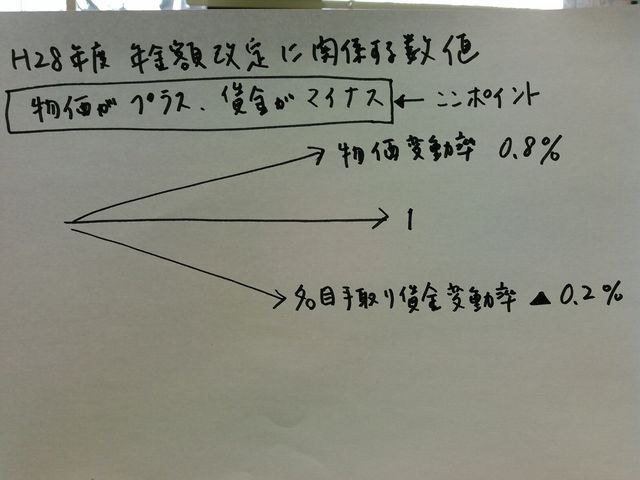 H28年度 年金額改定に関係する数値
物価がプラス、賃金がマイナス ← ココポイント
物価変動率 0.8%
1
名目手取り賃金変動率 ▲0.2%